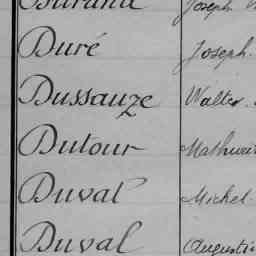 Durand Joseph
Duré Joseph
Dussauze Walter
Dutour Mathurin
Duval Michel
Duval Augustin